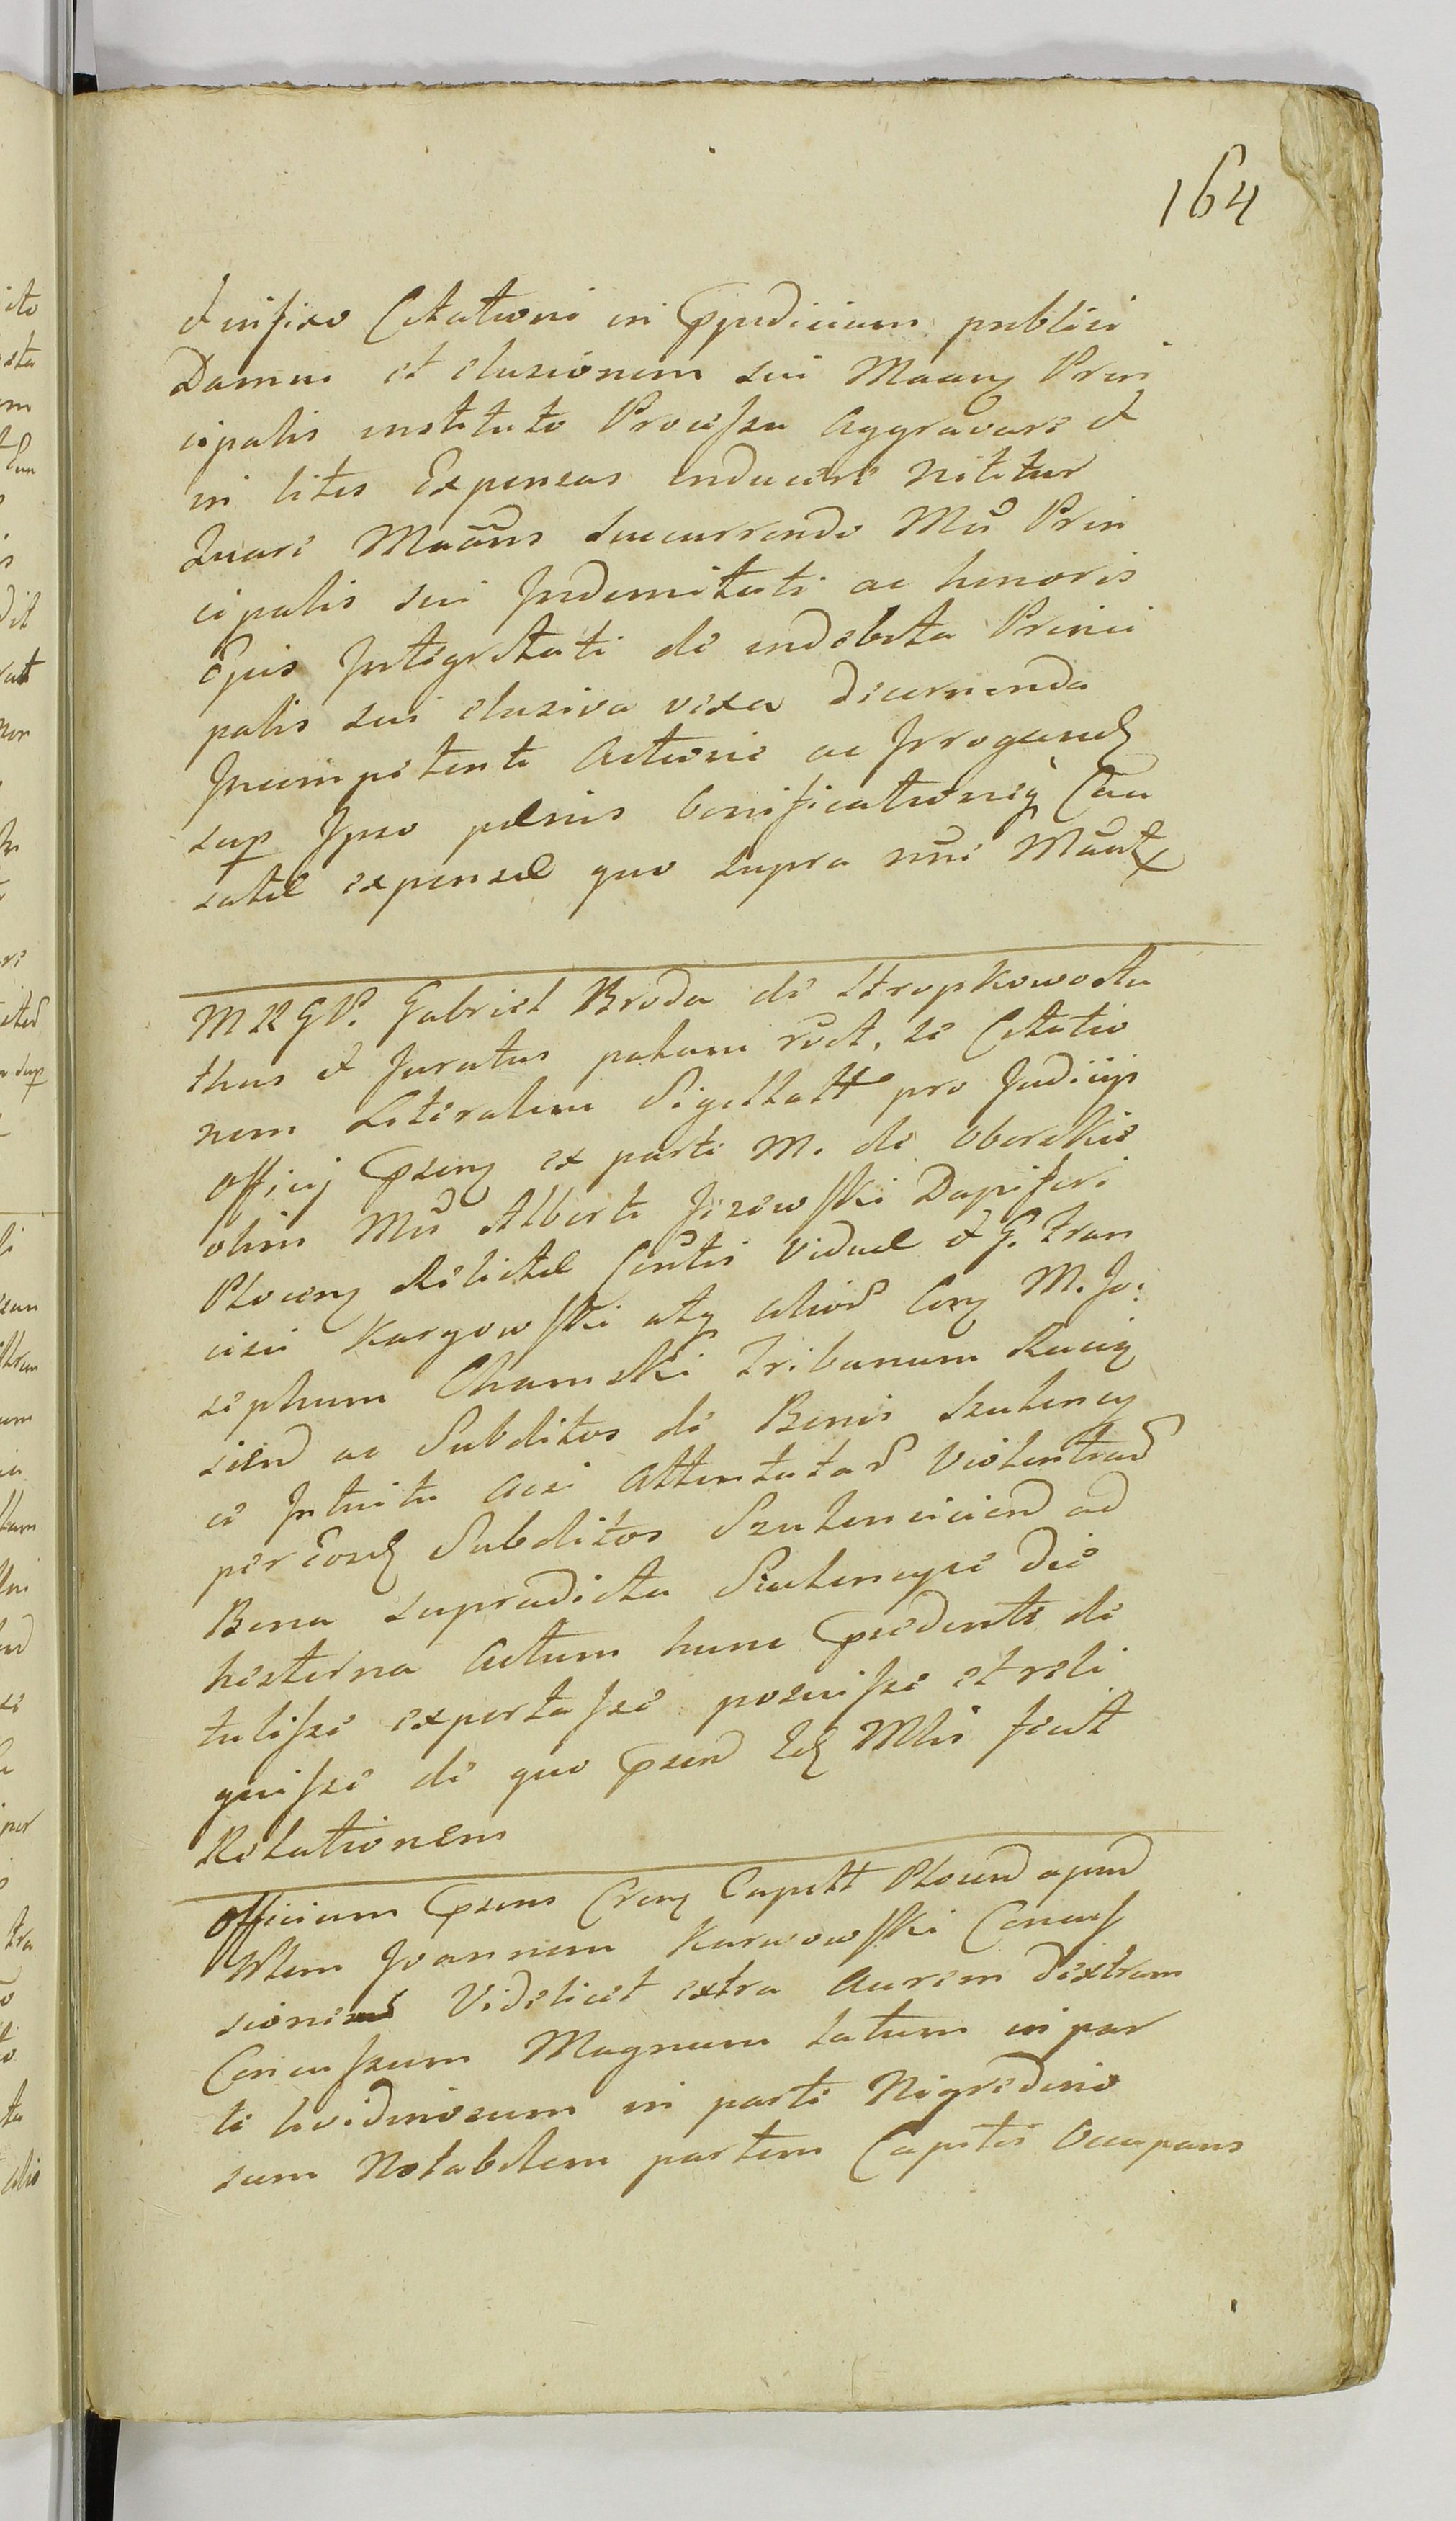 164
& infixo Citationi in Ppudicium publici
Damni et elusionem sui Maan Prin
cipalis instituto Processu aggravare &
in litis Expensas inducere nititur
Quare Maans succurrendo Mci Prin
cipalis sui Indemnitati ac honoris
Ejus Integritati de indebita Princi
palis sui elusiva vexa decernenda
Incompetenti actione ac Irrogand
sup Ipso paenis bonificationeq Cau
satae expensae quo supra nne Maat
MRGP. Gabriel Broda de Stropkowo sta
thus & Juratus palam rect. se Citatio
nem Literalem Sigillatt pro Judicijs
Officij Psenq ex parte M. de Oborskie
olim Mci Alberti Jezewski Dapiferi
Plocenq Relictae Contis Viduae & G. Fran
cisci Kargowski atq aliod Con M. Jo:
sephum Chamski Tribunum Raciąz
sien ac Subditos de Bonis Szulency
ce Intuitu acsi attentatad Violentiad
per Eosd Subditos Szulencicien ad
Bona supradicta Szulencyce die
hesterna actum hunc Pcedente de
tulisse exportasse posuisse et reli
quisse de quo Psen Id Mlis fecit
Relationem
Officium Psens Cren Capitt Plocen apud
Nblem Joannem Karwowski Concus
sionem Videlicet extra aurem dextram
Concussum Magnum latum in par
te lividinosum in parte Nigredino
sum Notabilem partem Capitis Occupans